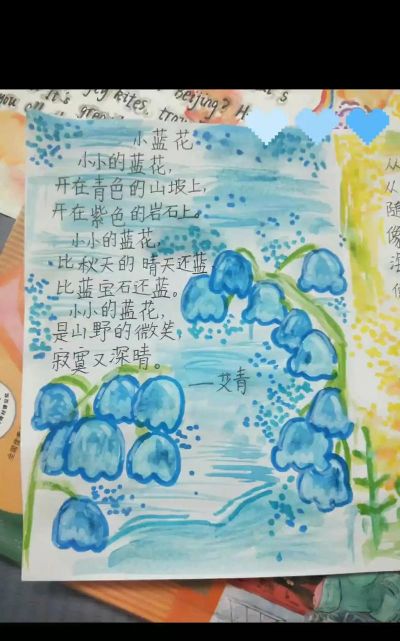 小蓝花
小小的蓝花，
开在青色的山坡上，
开在紫色的岩石上。
小小的蓝花，
比秋天的晴天还蓝
比蓝宝石还蓝。
小小的蓝花，
是山野的微笑，
寂寞又深晴。
——艾青
kites,
beijing? H
从
从
随
像